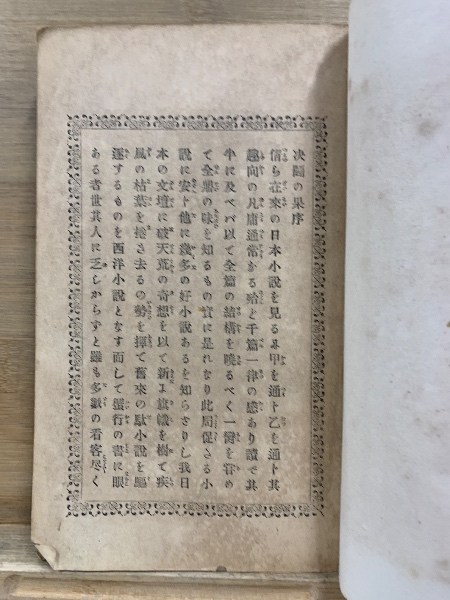 決鬪の果序
倩ら在來の日本小說を見るに甲を通ト乙を通ト其
趣向の凡庸通常かる殆と千篇一律の感あり讀で其
半に及べバ以て全篇の結構を曉るべく一臠を甞め
て全鼎の味を知るもの豈に是れなり此局促たる小
說に安ト他に幾多の好小說あるを知らさりし我日
本の文壇に破天荒の奇想を以て新よ旗幟を樹て疾
風の枯葉を捲き去るの勢を揮て舊來の駄小說を驅
逐するものを西洋小說となす而して蟹行の書に眼
ある者世其人に乏しからずと雖も多數の看客尽く